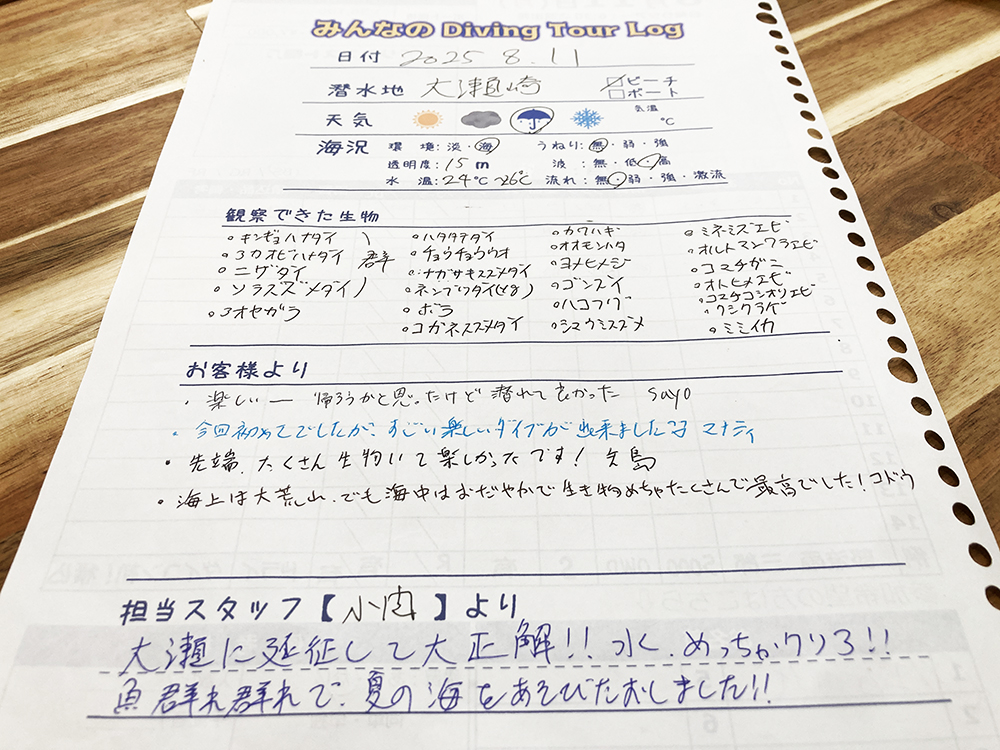 みんなの Diving Tour Log
日付 2025 8.11
潜水地 大瀬崎 ☑ビーチ
□ボート
天気 気温 ℃
海況 環境:淡・海 うねり:無・弱・強
透明度:15m 波:無・低・高
水温:24℃~26℃ 流れ:無・弱・強・激流
観察できた生物
○キンギョハナダイ ○ハタタテダイ ○カワハギ ○ミネミズエビ
○スカオビハナダイ 群 ○チョウチョウウオ ○オオモンハタ ○オルトマンワラエビ
○ニザダイ ○ナガサキスズメダイ ○ヨメヒメジ ○コマチガニ
○ソラスズメダイ ○ネンブツダイ ○ゴンズイ ○オトヒメエビ
○コマチコシオリエビ
○アオヤガラ ○ボラ ○ハコフグ ○クシクラゲ
○コガネスズメダイ ○シマウミスズメ ○ミミイカ
お客様より
・楽しいー 帰ろうかと思ったけど潜れて良かった sayo
・今回初めてでしたが、すごい楽しいダイブが出来ました マナティ
・先端、たくさん生物いて楽しかったです! 矢島
・海上は大荒山、でも海中はおだやかで生き物めちゃたくさんで最高でした!コドウ
担当スタッフ【小肉】より
大瀬に延征して大正解!!水く、めっちゃクリア!!
魚群れ群れで、夏の海をあそびたおしました!!